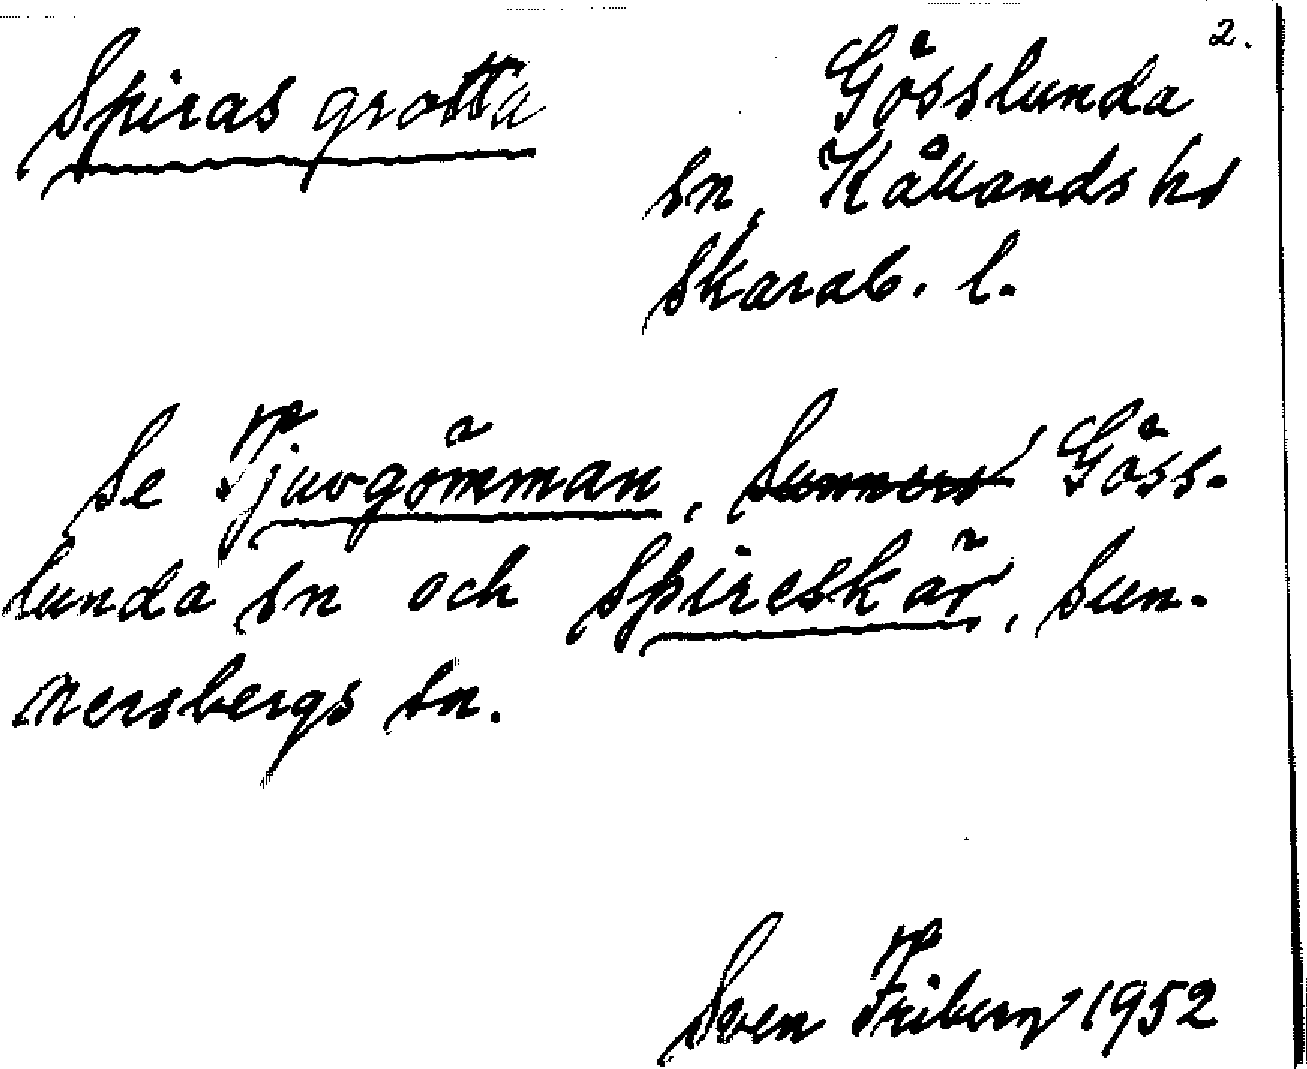 2.
Spiras grotta
Gösslunda
sn, Kållands hd
Skarab. l.
Se Tjuvgömman, Sunners Göss-
lunda sn och Spireskär, Sun-
nersbergs sn.
Sven Friberg 1952